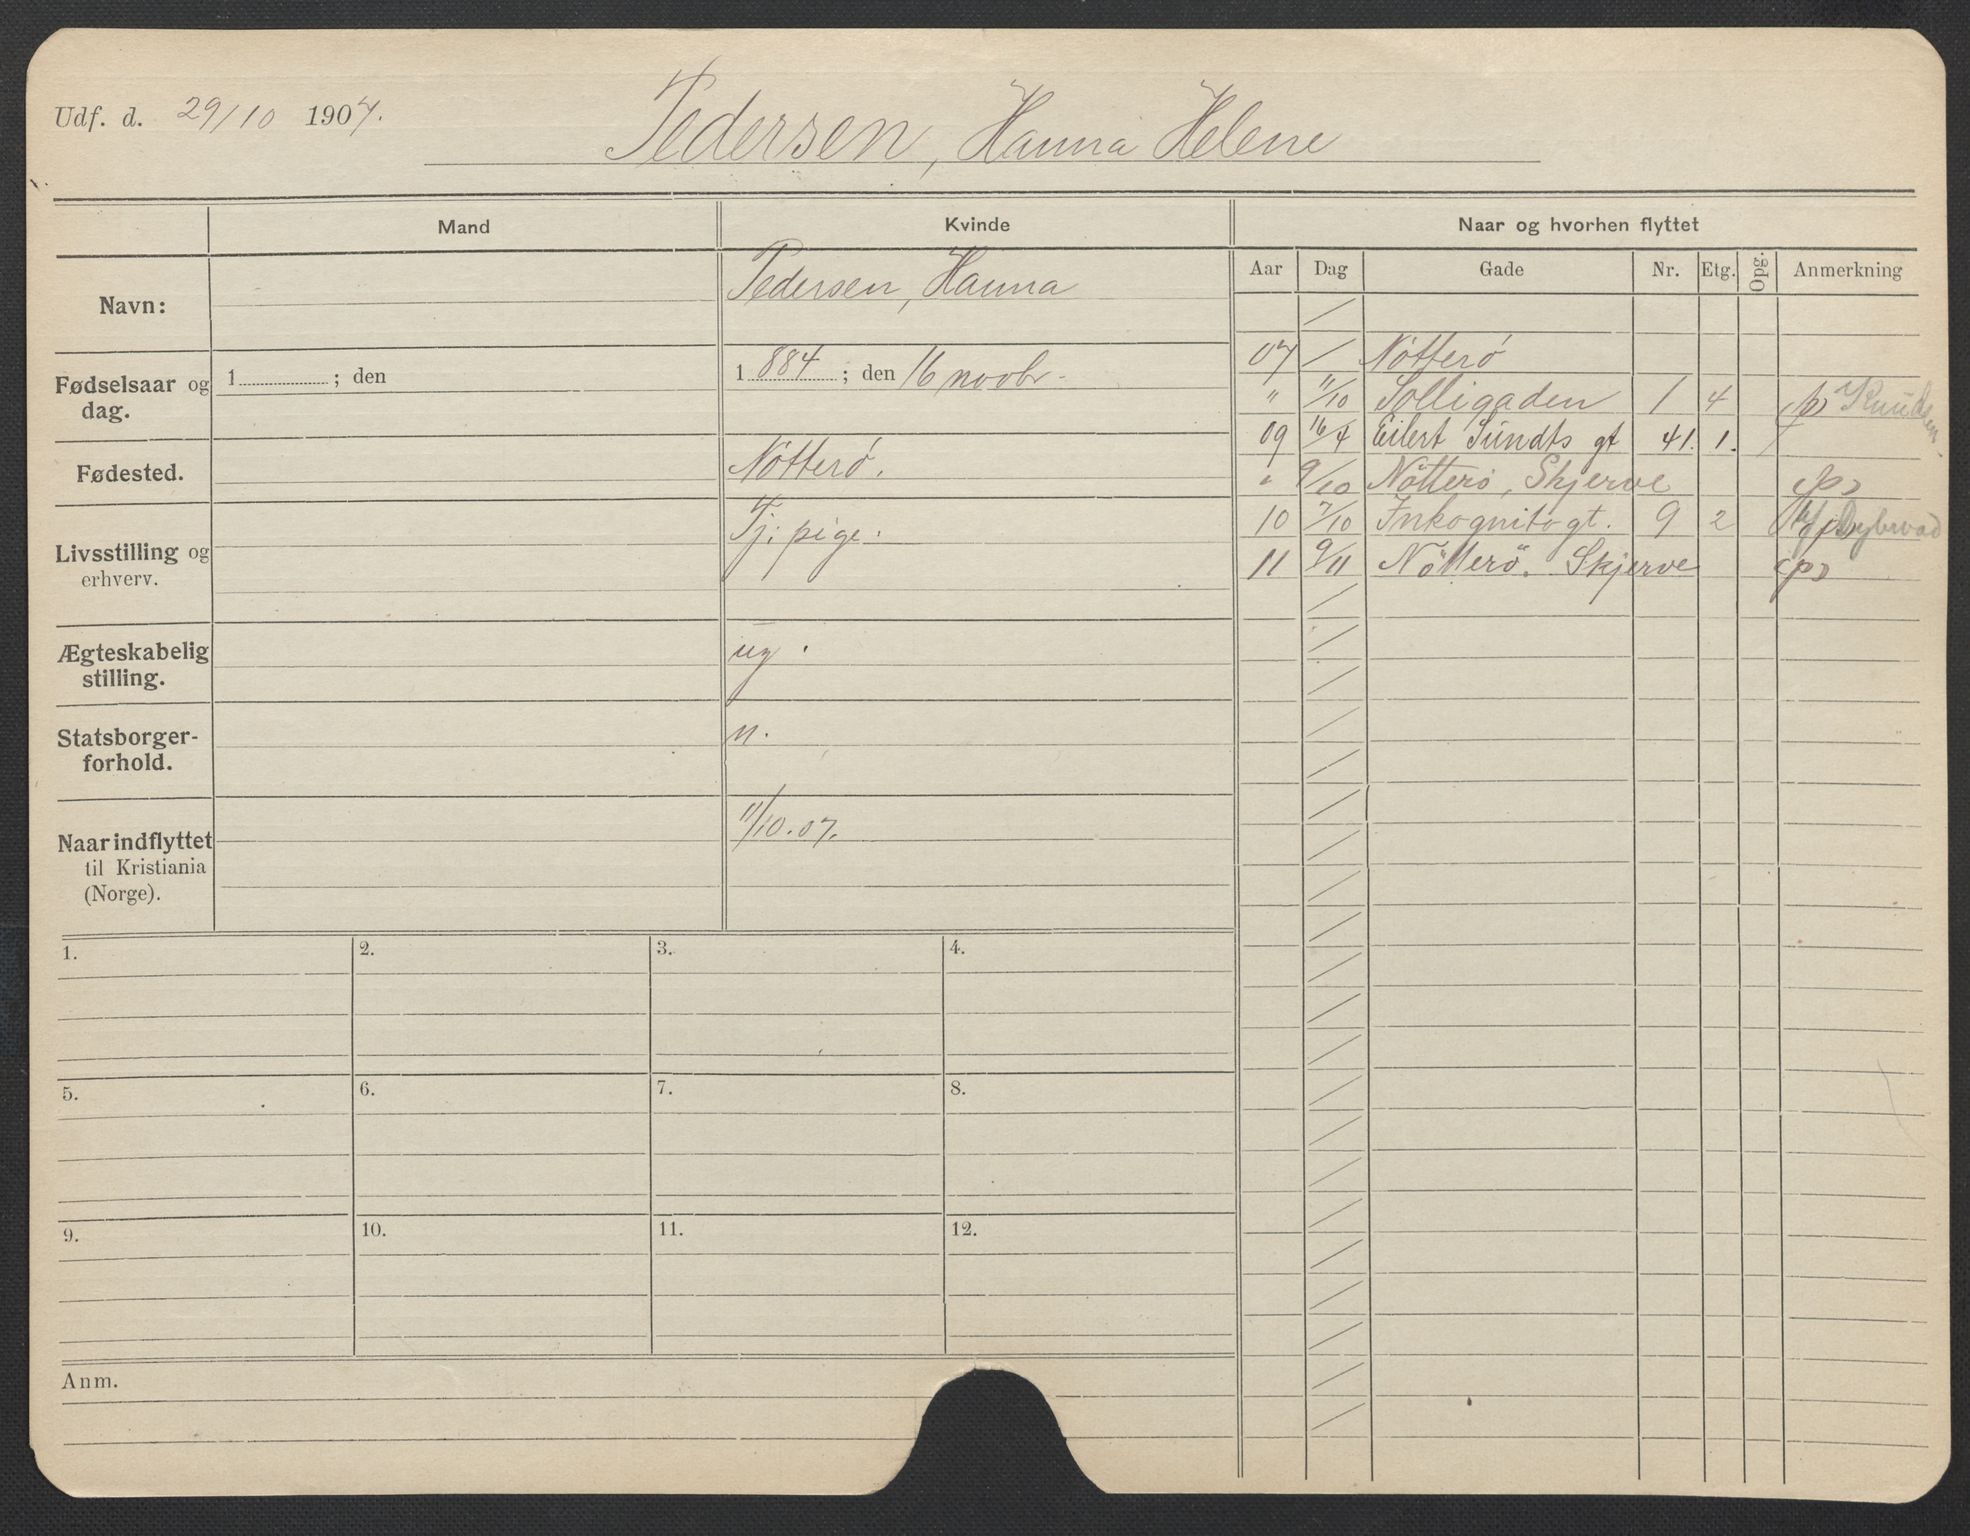 Udf. d. 29/10 1907.
Pedersen, Hanna Helene
Mand
Kvinde
Naar og hvorhen flyttet
Aar Dag Gade Nr. Etg. Opg. Anmerkning
Navn:
Pedersen, Hanna
Fødselsaar og dag.
1 ; den
1 884 ; den 16 novbr.
Fødested.
Nötterö.
Livsstilling og
erhverv.
Tj: pige.
Ægteskabelig
stilling.
ug.
Statsborger-
forhold.
n.
Naar indflyttet
til Kristiania
(Norge).
11/10.07.
07 / Nötterö
" 11/10 Solligaden 1 4 (p) Knudsen
09 16/4 Eilert Sundts gt 41. 1. /
" 9/10 Nötterö, Skjerve (p)
10 7/10 Inkognitogt. 9 2 Dybwad
11 9/11 Nötterö. Skjerve (p)
1. 2. 3. 4.
5. 6. 7. 8.
9. 10. 11. 12.
Anm.